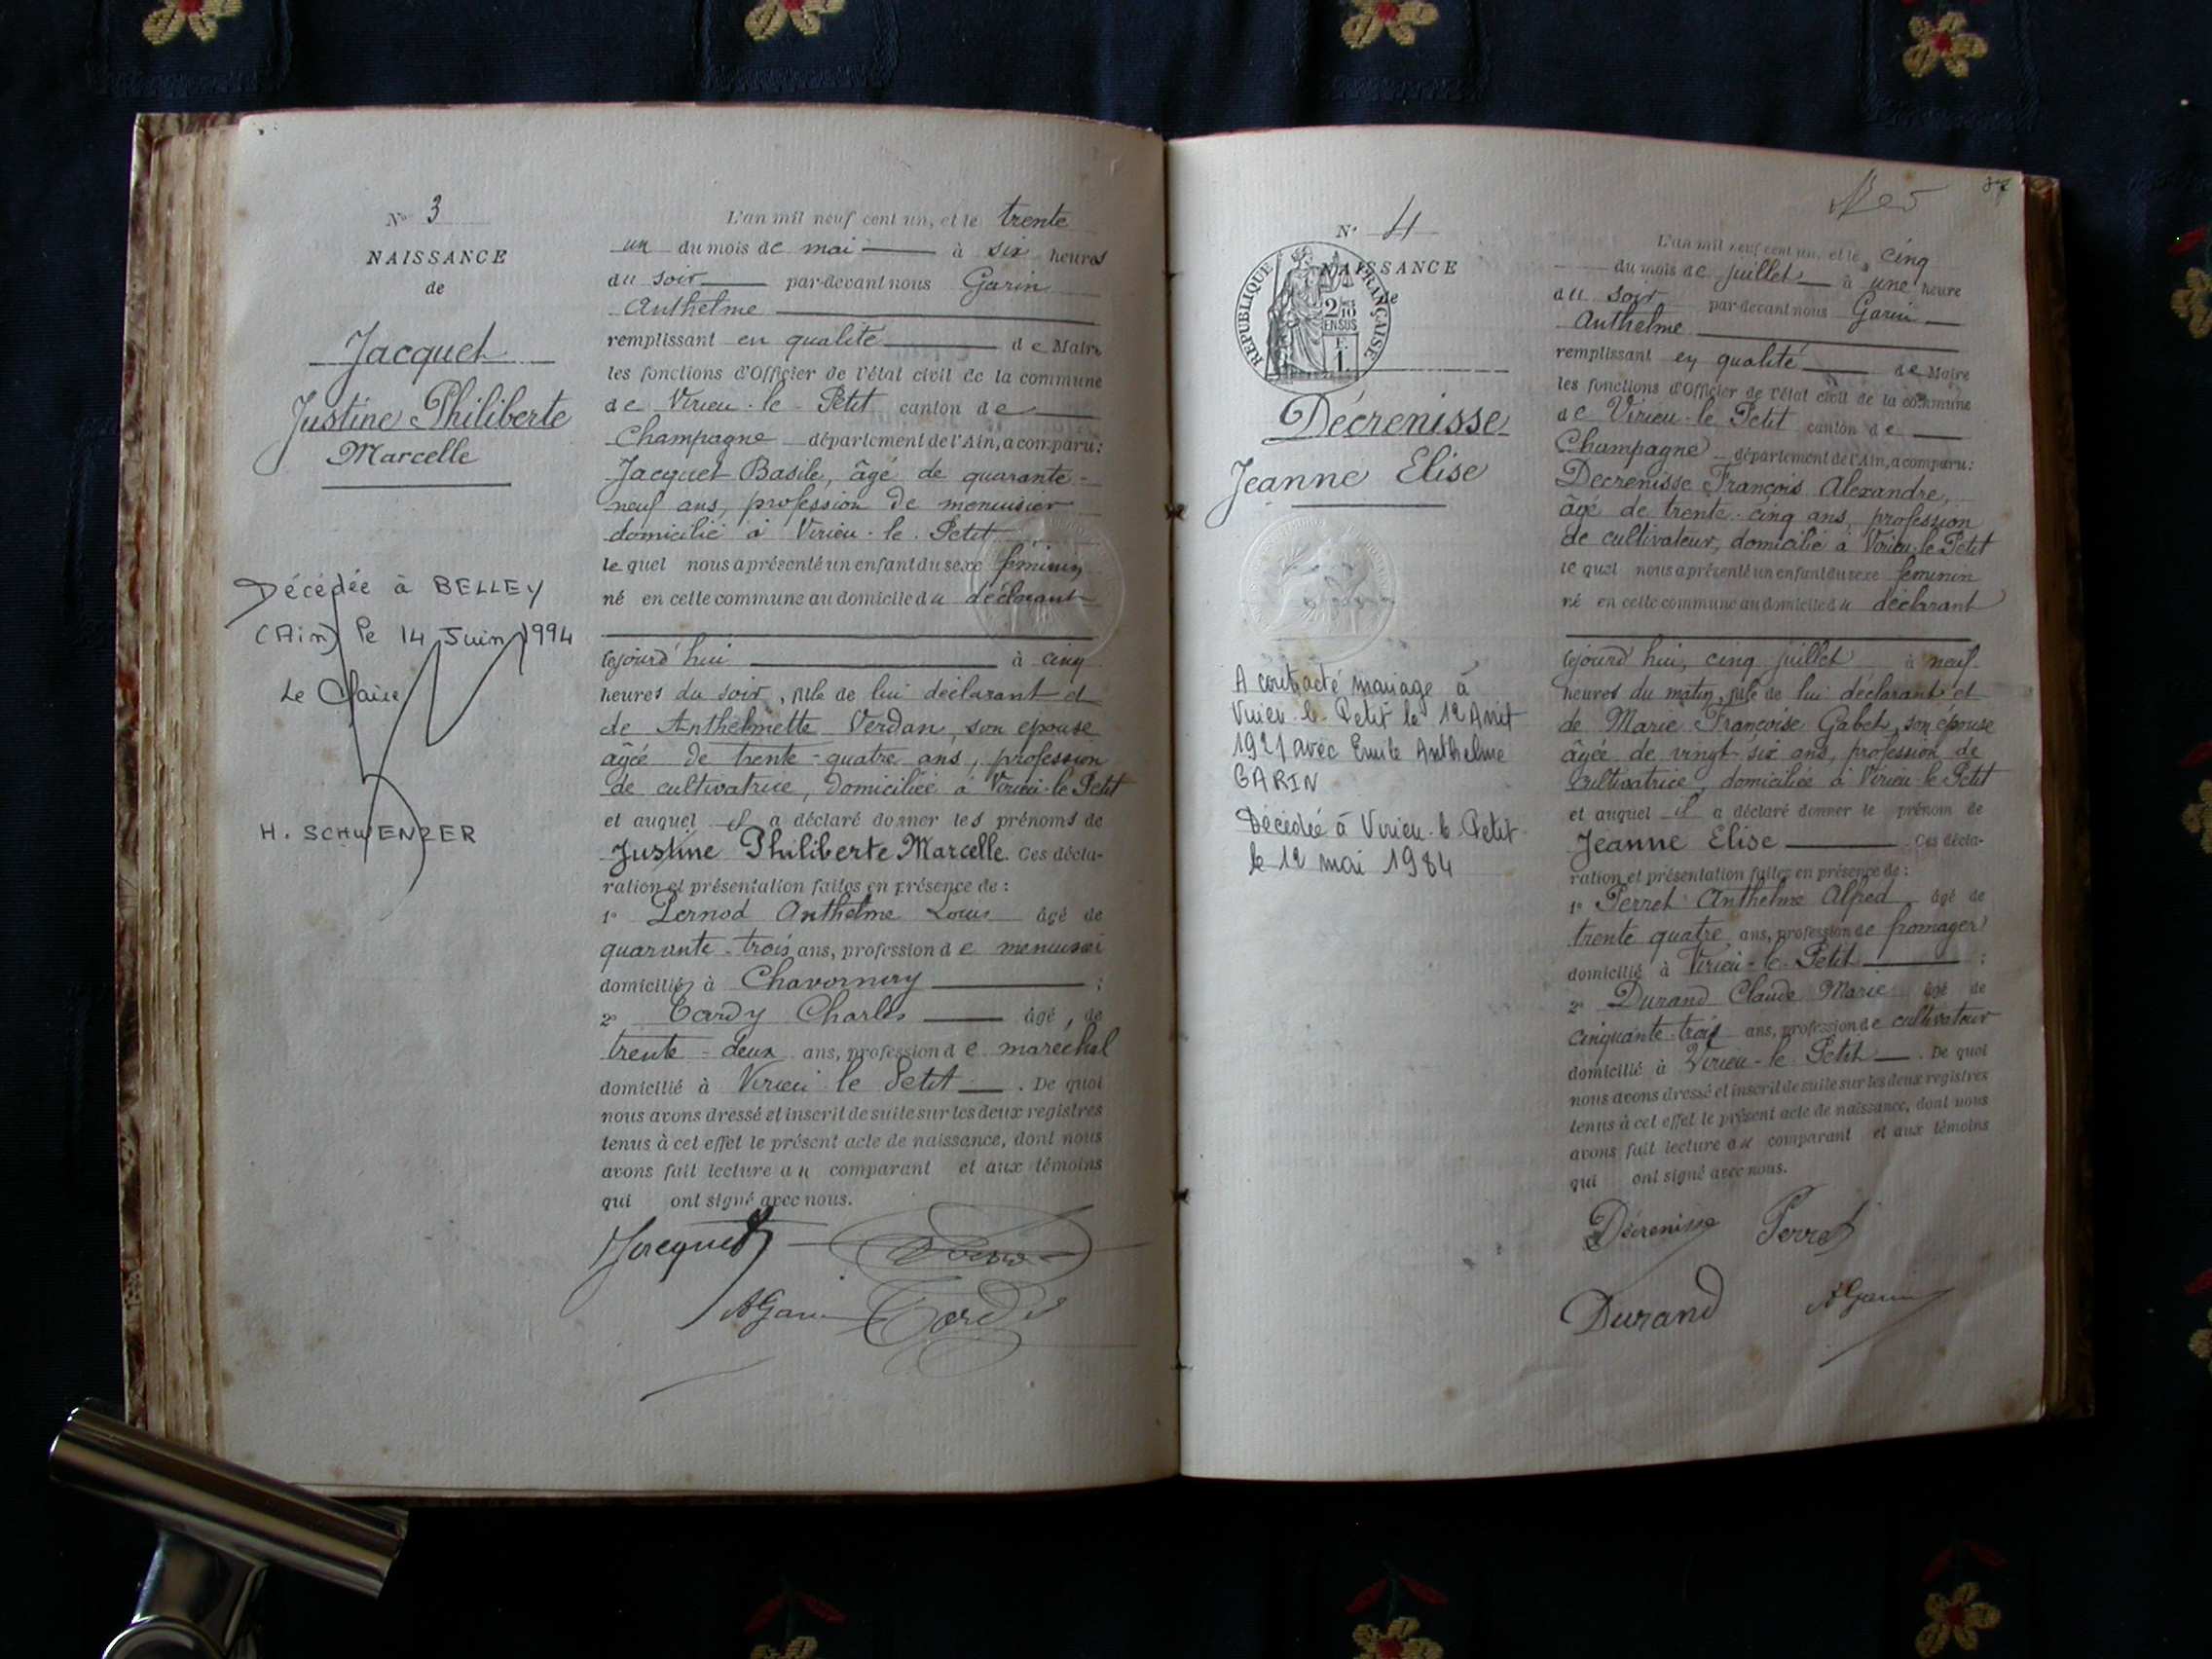 No 3
NAISSANCE
de
Jacquet
Justine Philiberte
Marcelle
Décédée à BELLEY
(Ain) le 14 Juin 1994
Le Maire
H. SCHWENZER
L'an mil neuf cent un, et le trente
un du mois de mai à six heures
du soir par-devant nous Garin
Anthelme
remplissant en qualité de Maire
les fonctions d'Officier de l'état civil de la commune
de Virieu-le-Petit canton de
Champagne département de l'Ain, a comparu:
Jacquet Basile, âgé de quarante-
neuf ans, profession de menuisier
domicilié à Virieu-le-Petit
lequel nous a présenté un enfant du sexe féminin
né en cette commune au domicile du déclarant
cejourd'hui à cinq
heures du soir, fille de lui déclarant et
de Anthelmette Verdan, son épouse
âgée de trente-quatre ans, profession
de cultivatrice, domiciliée à Virieu-le-Petit
et auquel il a déclaré donner les prénoms de
Justine Philiberte Marcelle. Ces décla-
ration et présentation faites en présence de :
1o Pernod Anthelme Louis âgé de
quarante-trois ans, profession de menuisier
domicilié à Chavornay ;
2o Tardy Charles âgé de
trente-deux ans, profession de maréchal
domicilié à Virieu le Petit. De quoi
nous avons dressé et inscrit de suite sur les deux registres
tenus à cet effet le présent acte de naissance, dont nous
avons fait lecture au comparant et aux témoins
qui ont signé avec nous.
Jacquet
AGarin Tardy
37
No 4
NAISSANCE
de
RÉPUBLIQUE FRANÇAISE
2/10
EN SUS
F.
1.
Décrenisse
Jeanne Elise
A contracté mariage à
Virieu-le-Petit le 12 Avril
1921 avec Emile Anthelme
GARIN
Décédée à Virieu-le-Petit
le 12 mai 1984
L'an mil neuf cent un, et le cinq
du mois de juillet à une heure
du soir par-devant nous Garin
Anthelme
remplissant en qualité de Maire
les fonctions d'Officier de l'état civil de la commune
de Virieu-le-Petit canton de
Champagne département de l'Ain, a comparu:
Decrenisse François Alexandre,
âgé de trente-cinq ans, profession
de cultivateur, domicilié à Virieu-le-Petit
lequel nous a présenté un enfant du sexe féminin
né en cette commune au domicile du déclarant
cejourd'hui, cinq juillet à neuf
heures du matin, fille de lui déclarant et
de Marie Françoise Gabet, son épouse
âgée de vingt-six ans, profession de
cultivatrice, domiciliée à Virieu-le-Petit
et auquel il a déclaré donner le prénom de
Jeanne Elise. Ces décla-
ration et présentation faites en présence de :
1o Perret Anthelme Alfred âgé de
trente quatre ans, profession de fromager
domicilié à Virieu-le-Petit ;
2o Durand Claude Marie âgé de
cinquante-trois ans, profession de cultivateur
domicilié à Virieu-le-Petit. De quoi
nous avons dressé et inscrit de suite sur les deux registres
tenus à cet effet le présent acte de naissance, dont nous
avons fait lecture au comparant et aux témoins
qui ont signé avec nous.
Décrenisse Perret
Durand AGarin